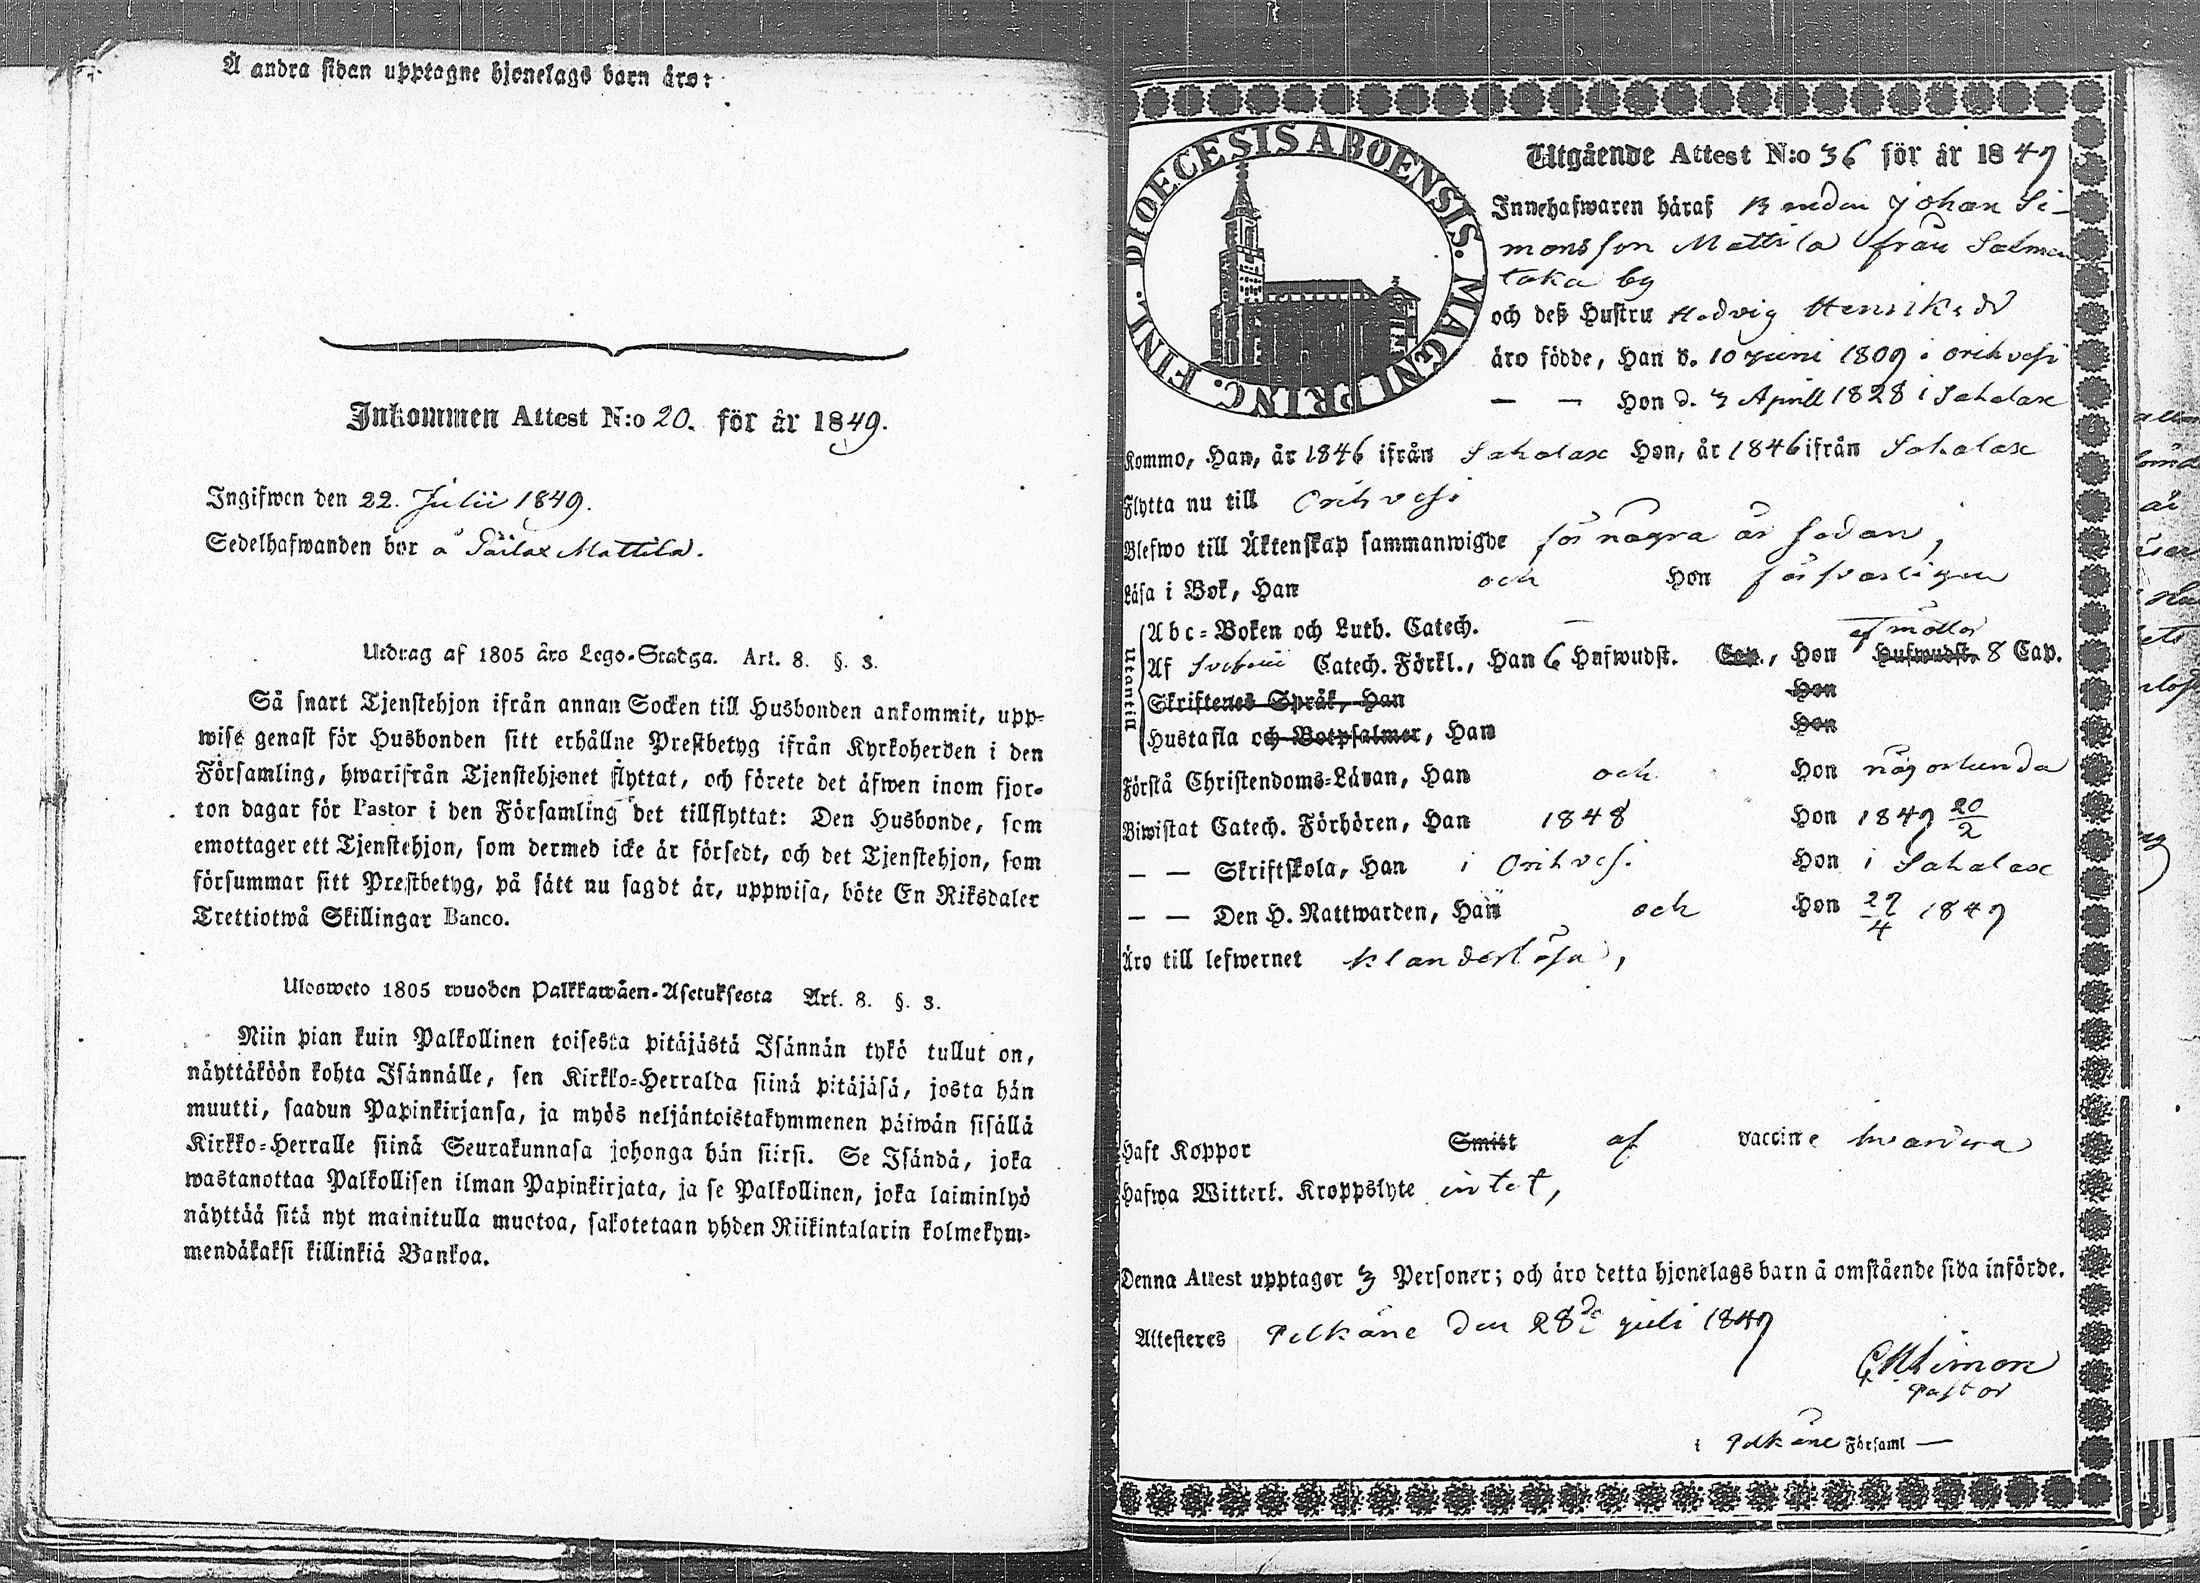 Å andra sidan upptagne hjonelags barn äro:
Inkommen Attest N:o 20. för år 1849.
Ingifwen den 22. Julii 1849.
Sedelhafwanden bor å Päilax Mattila.
Utdrag af 1805 års Lego-Stadga. Art. 8. §. 3.
Så snart Tjenstehjon ifrån annan Socken till Husbonden ankommit, upp-
wise genast för Husbonden sitt erhållne Prestbetyg ifrån Kyrkoherden i den
Församling, hwarifrån Tjenstehjonet flyttat, och förete det äfwen inom fjor-
ton dagar för Pastor i den Församling det tillflyttat: Den Husbonde, som
emottager ett Tjenstehjon, som dermed icke är försedt, och det Tjenstehjon, som
försummar sitt Prestbetyg, på sätt nu sagdt är, uppwisa, böte En Riksdaler
Trettiotwå Skillingar Banco.
Ulosweto 1805 wuoden Palkkawäen-Asetuksesta Art. 8. §. 3.
Niin pian kuin Palkollinen toisesta pitäjästä Isännän tykö tullut on,
näyttäköön kohta Isännälle, sen Kirkko-Herralda siinä pitäjäsä, josta hän
muutti, saadun Papinkirjansa, ja myös neljäntoistakymmenen päiwän sisällä
Kirkko-Herralle siinä Seurakunnasa johonga hän siirsi. Se Isändä, joka
wastanottaa Palkollisen ilman Papinkirjata, ja se Palkollinen, joka laiminlyö
näyttää sitä nyt mainitulla muotoa, sakotetaan yhden Riikintalarin kolmekym-
mendäkaksi killinkiä Bankoa.
DIOECESIS ABOENSIS. MAGNI PRINC. FINL.
Utgående Attest N:o 36 för år 1849
Innehafwaren häraf Bonden Johan Si-
monsson Mattila från Salmen
taka by
och deß Hustru Hedvig Henriksdr
äro födde, Han d. 10 Juni 1809 i Orihvesi
— — Hon d. 3 April 1828 i Sahalax
Kommo, Han, år 1846 ifrån Sahalax Hon, år 1846 ifrån Sahalax
Flytta nu till Orihvesi
Blefwo till Äktenskap sammanwigde för några år sedan,
Läsa i Bok, Han och Hon försvarligen
Utantill
Abc-Boken och Luth. Catech. —
Af Svebelii Catech. Förkl., Han 6 Hufwudst. Cap., Hon Hufwudst. 8 Cap.
Skriftenes Språk, Han Hon
Hustafla och Botpsalmer, Han Hon
Förstå Christendoms-Läran, Han och Hon någorlunda
Biwistat Catech. Förhören, Han 1848 Hon 1849 20/2
— — Skriftskola, Han i Orihvesi Hon i Sahalax
— — Den H. Nattwarden, Han och Hon 29/4 1849
Äro till lefwernet klanderlösa,
Haft Koppor Smitt af vaccine hvardera
Hafwa Witterl. Kroppslyte intet,
Denna Attest upptager 3 Personer; och äro detta hjonelags barn å omstående sida införde.
Attesteres Pelkäne den 28de Juli 1849
Pastor
i Pelkäne Församl —